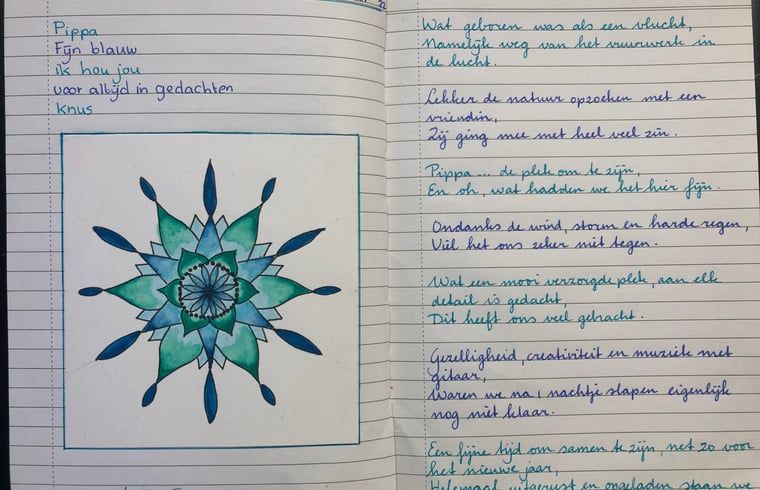 Pippa
Fijn blauw
ik hou jou
voor altijd in gedachten
knus
Wat geboren was als een vlucht,
Namelijk weg van het vuurwerk in
de lucht.
Lekker de natuur opzoeken met een
vriendin,
Zij ging mee met heel veel zin.
Pippa ... de plek om te zijn,
En oh, wat hadden we het hier fijn.
Ondanks de wind, storm en harde regen,
Viel het ons zeker niet tegen.
Wat een mooi verzorgde plek, aan elk
detail is gedacht,
Dit heeft ons veel gebracht.
Gezelligheid, creativiteit en muziek met
gitaar,
Waren we na 1 nachtje slapen eigenlijk
nog niet klaar.
Een fijne tijd om samen te zijn, net zo voor
het nieuwe jaar,
Helemaal uitgerust en opgeladen staan we